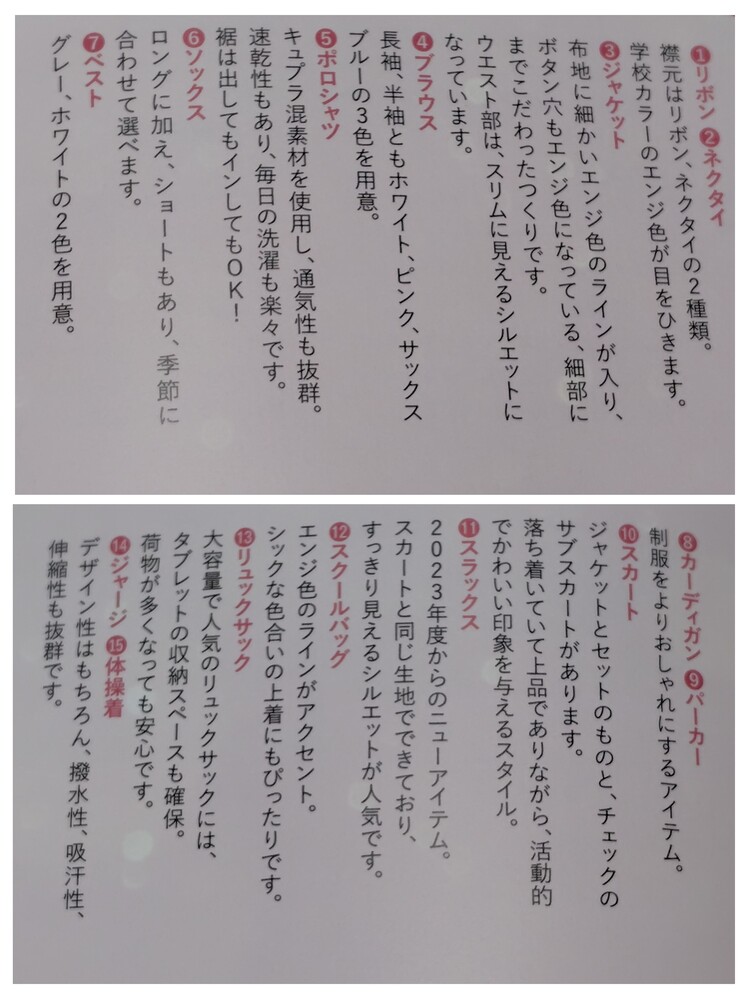 ❶リボン ❷ネクタイ
襟元はリボン、ネクタイの2種類。
学校カラーのエンジ色が目をひきます。
❸ジャケット
布地に細かいエンジ色のラインが入り、
ボタン穴もエンジ色になっている、細部に
までこだわったつくりです。
ウエスト部は、スリムに見えるシルエットに
なっています。
❹ブラウス
長袖、半袖ともホワイト、ピンク、サックス
ブルーの3色を用意。
❺ポロシャツ
キュプラ混素材を使用し、通気性も抜群。
速乾性もあり、毎日の洗濯も楽々です。
裾は出してもインしてもOK！
❻ソックス
ロングに加え、ショートもあり、季節に
合わせて選べます。
❼ベスト
グレー、ホワイトの2色を用意。
❽カーディガン ❾パーカー
制服をよりおしゃれにするアイテム。
❿スカート
ジャケットとセットのものと、チェックの
サブスカートがあります。
落ち着いていて上品でありながら、活動的
でかわいい印象を与えるスタイル。
⓫スラックス
2023年度からのニューアイテム。
スカートと同じ生地でできており、
すっきり見えるシルエットが人気です。
⓬スクールバッグ
エンジ色のラインがアクセント。
シックな色合いの上着にもぴったりです。
⓭リュックサック
大容量で人気のリュックサックには、
タブレットの収納スペースも確保。
荷物が多くなっても安心です。
⓮ジャージ ⓯体操着
デザイン性はもちろん、撥水性、吸汗性、
伸縮性も抜群です。